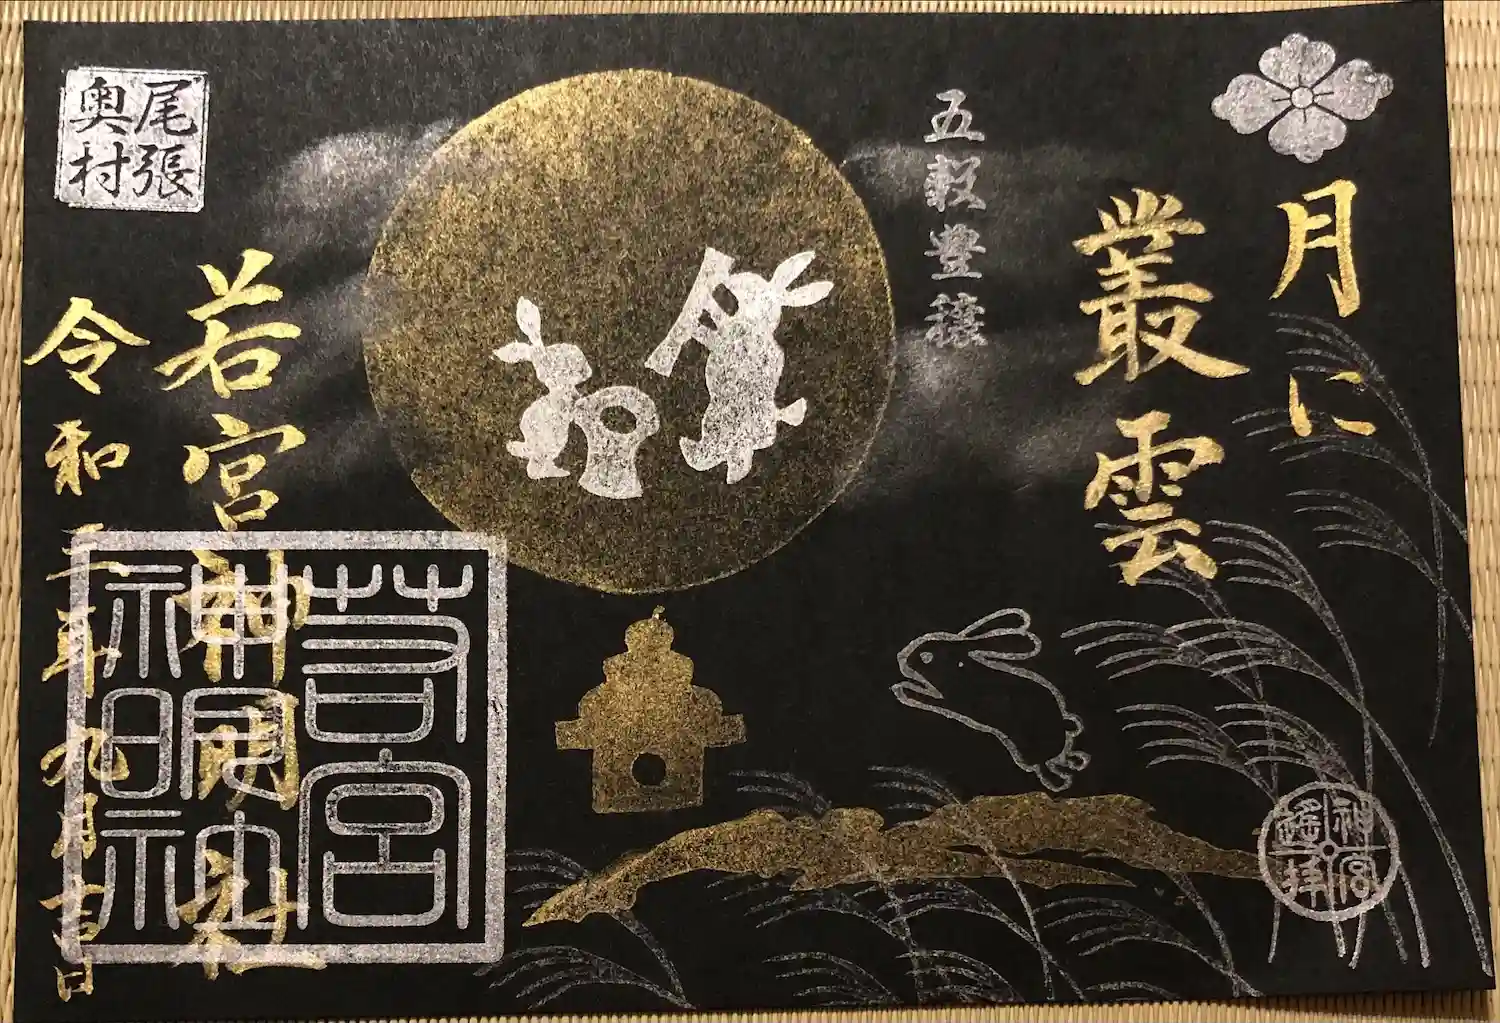 月に
叢雲
五穀豊穣
若宮神明社
令和二年九月吉日
尾張
奥村
若宮
神明社
神宮
遙拝